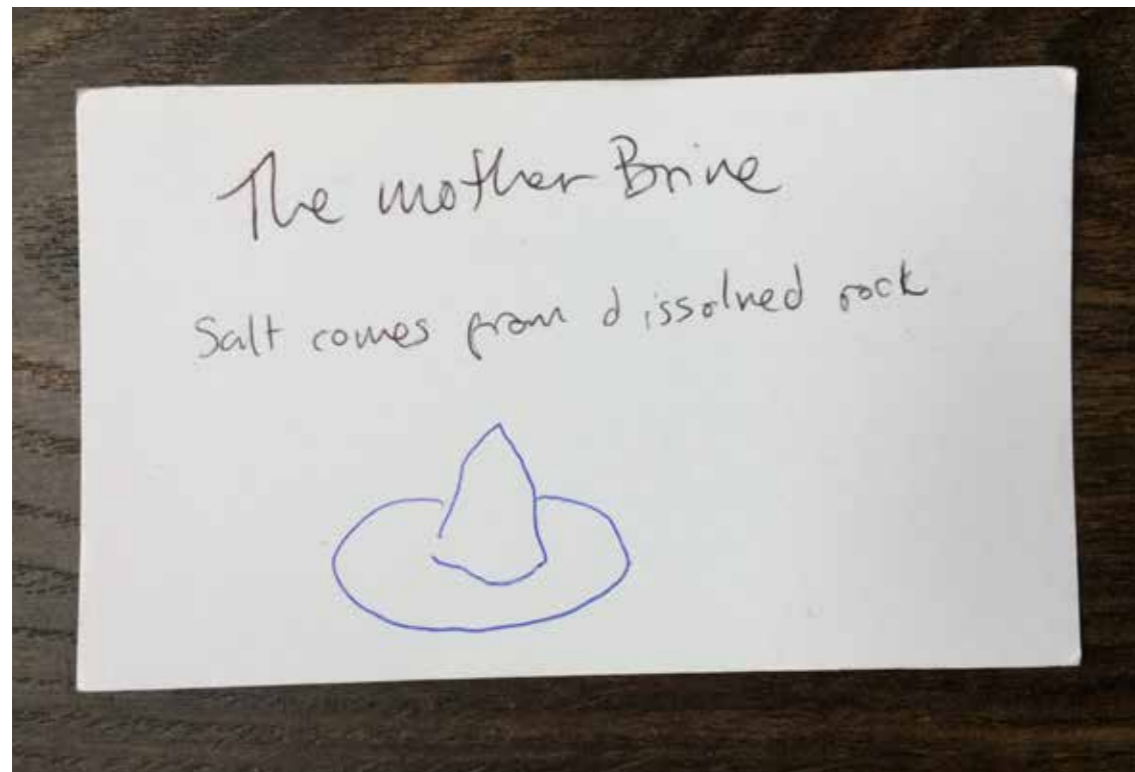 The mother Brine
Salt comes from dissolved rock